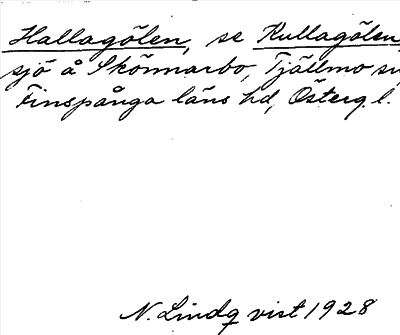 Hallagölen, se Kullagölen,
sjö å Skönnarbo, Tjällmo sn,
Finspånga läns hd, Österg. l.
N. Lindqvist 1928